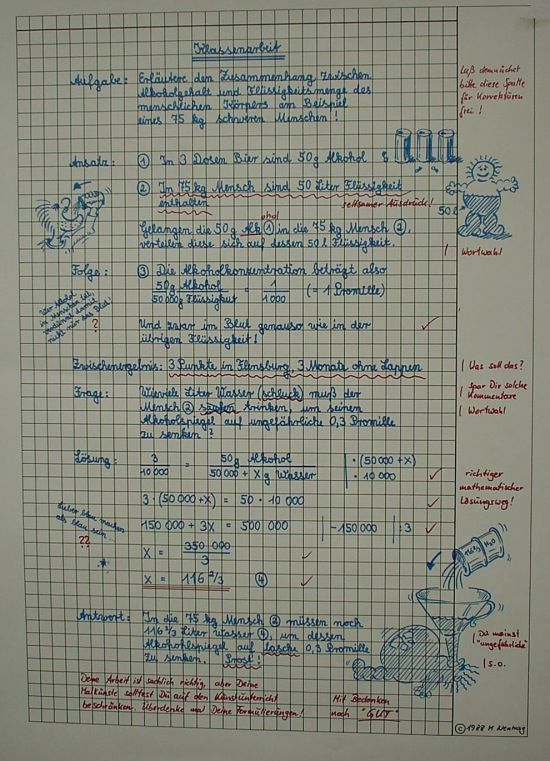 Klassenarbeit
Aufgabe: Erläutere den Zusammenhang zwischen
Alkoholgehalt und Flüssigkeitsmenge des
menschlichen Körpers am Beispiel
eines 75 kg schweren Menschen!
Laß demnächst
bitte diese Spalte
für Korrekturen
frei!
Ansatz: ① In 3 Dosen Bier sind 50g Alkohol
② In 75 kg Mensch sind 50 Liter Flüssigkeit
enthalten
seltsamer Ausdruck!
50 l
ohol
Gelangen die 50g Alk ① in die 75 kg Mensch ②,
verteilen diese sich auf dessen 50 l Flüssigkeit.
| Wortwahl
Folge: ③ Die Alkoholkonzentration beträgt also
50g Alkohol / 50 000g Flüssigkeit = 1 / 1000 (= 1 Promille)
in Menschen
nicht nur das Blut!
?
Und zwar im Blut genauso wie in der
übrigen Flüssigkeit!
Zwischenergebnis: 3 Punkte in Flensburg, 3 Monate ohne Lappen
| Was soll das?
Frage: Wieviele Liter Wasser (schluck) muß der
| Spar Dir solche
Kommentare
Mensch ② saufen trinken, um seinen
| Wortwahl
Alkoholspiegel auf ungefährliche 0,3 Promille
zu senken?
Lösung: 3 / 10 000 = 50g Alkohol / 50 000 + X g Wasser | · (50 000 + X) · 10 000
richtiger
mathematischer
Lösungsweg!
3 · (50 000 + X) = 50 · 10 000
Lieber blau machen
als blau sein
??
150 000 + 3X = 500 000 | - 150 000 | : 3
X = 350 000 / 3
X = 116 2/3 ④
116 2/3 l H₂O
Antwort: In die 75 kg Mensch ② müssen noch
116 2/3 Liter Wasser ④, um dessen
Alkohohlspiegel auf lasche 0,3 Promille
zu senken. Prost!
| Du meinst
"ungefährliche"
| s.o.
Deine Arbeit ist sachlich richtig, aber Deine
Malkünste solltest Du auf den Kunstunterricht
beschränken. Überdenke mal Deine Formulierungen!
Mit Bedenken
noch "GUT"
© 1988 M Newtag